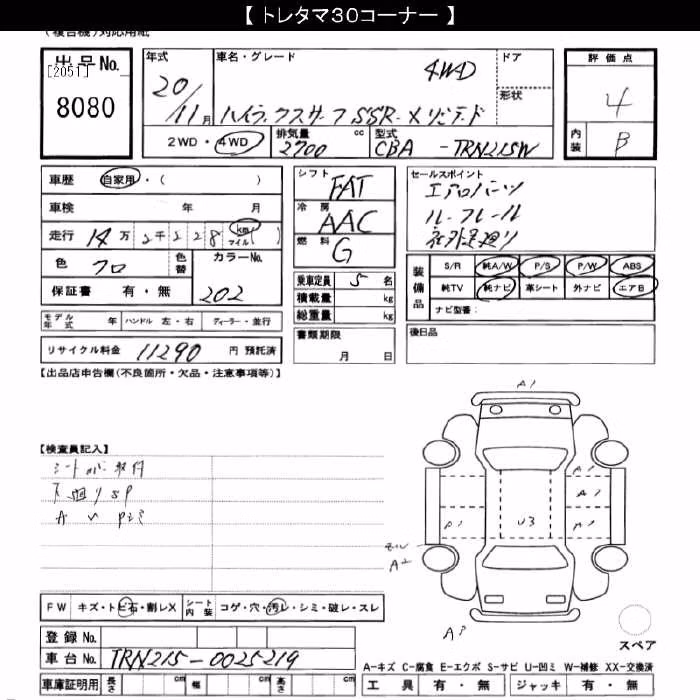 【 トレタマ３０コーナー 】
(複合機)対応用紙
出品No.
[2051]
8080
年式
20/11月
車名・グレード
4WD
ハイラックスサーフ SSR-X リミテッド
ドア
形状
2WD ・ 4WD
排気量 cc
2700
型式
CBA-TRN215W
評価点
4
内装
B
車歴 自家用・( )
車検 年 月
走行 14万2千228 km マイル ( )
色 クロ 色替
カラーNo.
202
保証書 有・無
シフト
FAT
冷房
AAC
燃料
G
乗車定員 5 名
積載量 kg
総重量 kg
セールスポイント
エアロパーツ
ルーフレール
装備品
S/R 純A/W P/S P/W ABS
純TV 純ナビ 革シート 外ナビ エアB
ナビ型番：
モデル年式 年 ハンドル 左・右 ディーラー・並行
リサイクル料金 11290 円 預託済
書類期限
月 日
後日品
【出品店申告欄(不良箇所・欠品・注意事項等)】
【検査員記入】
下廻りSP
A1
A1
A1
A1
A1
U3
A2
FW キズ・トビ石・割レX シート内装 コゲ・穴・汚レ・シミ・破レ・スレ
登録 No.
車台 No. TRN215-0025219
車庫証明用 長さ cm 幅 cm 高さ cm
スペア
A-キズ C-腐食 E-エクボ S-サビ U-凹ミ W-補修 XX-交換済
工具 有・無 ジャッキ 有・無